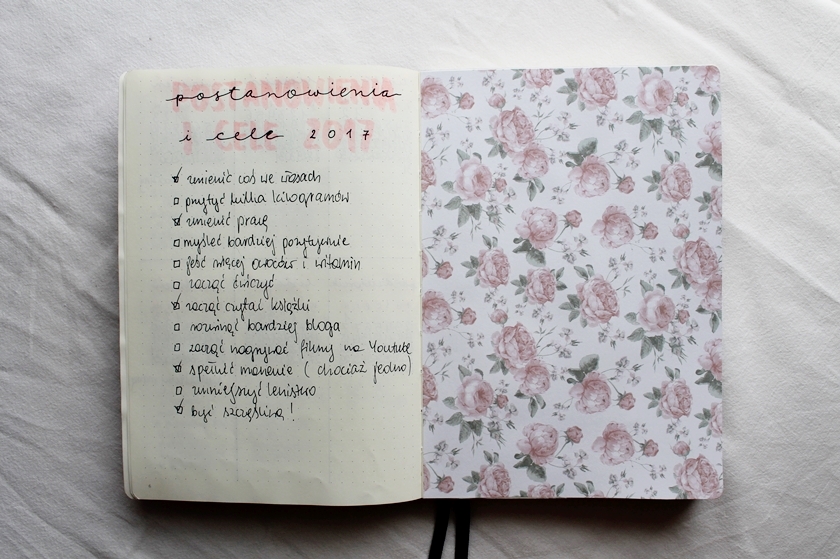 postanowienia
i cele 2017
zmienić coś we włosach
przytyć kilka kilogramów
zmienić pracę
myśleć bardziej pozytywnie
jeść więcej owoców i witamin
zacząć ćwiczyć
zacząć czytać książki
rozwinąć bardziej bloga
zacząć nagrywać filmy na Youtube
spełnić marzenie (chociaż jedno)
zmniejszyć lenistwo
być szczęśliwą!